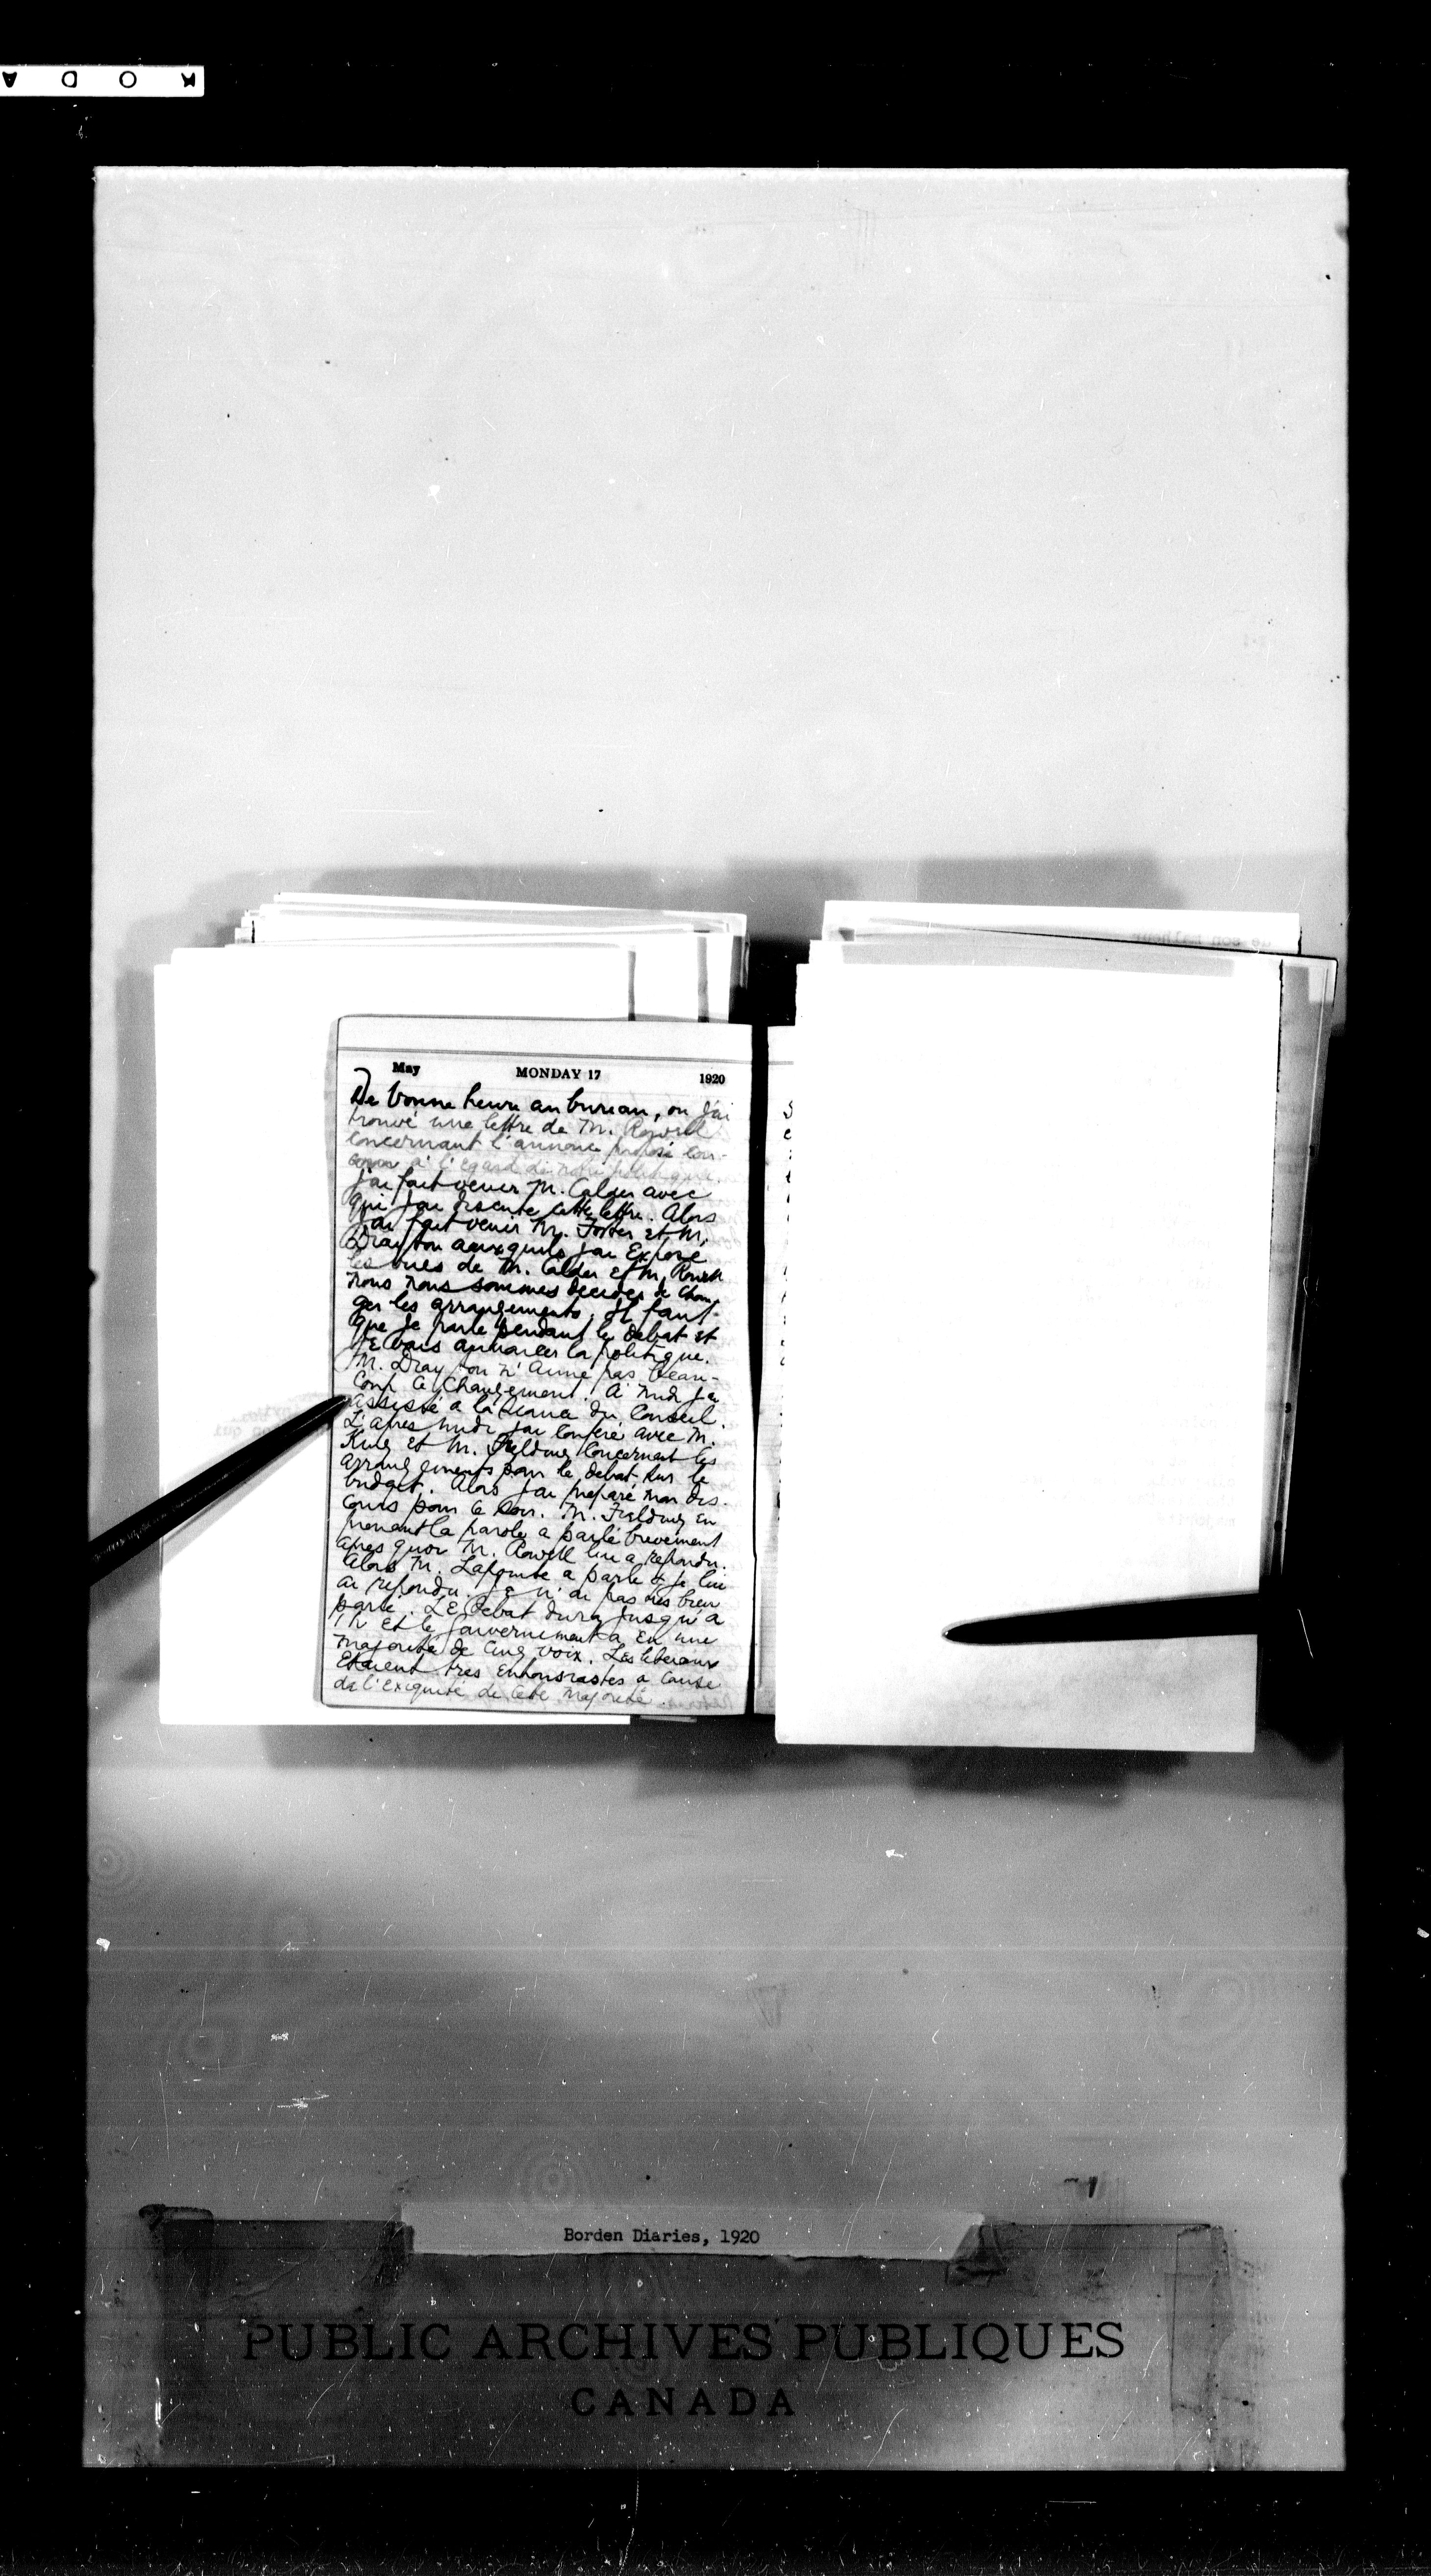 May MONDAY 17 1920
De bonne heure au bureau, ou j'ai
trouvé une lettre de M. Rowell
concernant l'annonce proposé
à l'egard de notre politique.
J'ai fait venir M. Calder avec
qui j'ai discuté cette lettre. Alors
j'ai fait venir M. Foster et M.
Drayton auxquels j'ai Exposé
les vues de M. Calder et M. Rowell
Nous nous sommes decidés de chan-
ger les arrangements. Il faut
que je parle pendant le debat et
je vais annoncer la politique.
M. Drayton n'aime pas beau-
coup ce changement. A midi j'ai
assisté a la seance du Conseil.
L'apres midi j'ai conferé avec M.
King et M. Fielding concernant les
arrangements pour le debat sur le
budget. Alors j'ai preparé mon dis-
cours pour ce soir. M. Fielding en
prenant la parole a parlé brevement
apres quoi M. Rowell lui a repondu.
Alors M. Lapointe a parlé & je lui
ai repondu. Je n'ai pas tres bien
parlé. LE Debat dura jusqu'a
1 h et le Gouvernement a eu une
majorité de cinq voix. Les liberaux
Etaient tres enthousiastes a cause
de l'exiguité de cette majorité.
Borden Diaries, 1920
PUBLIC ARCHIVES PUBLIQUES
CANADA